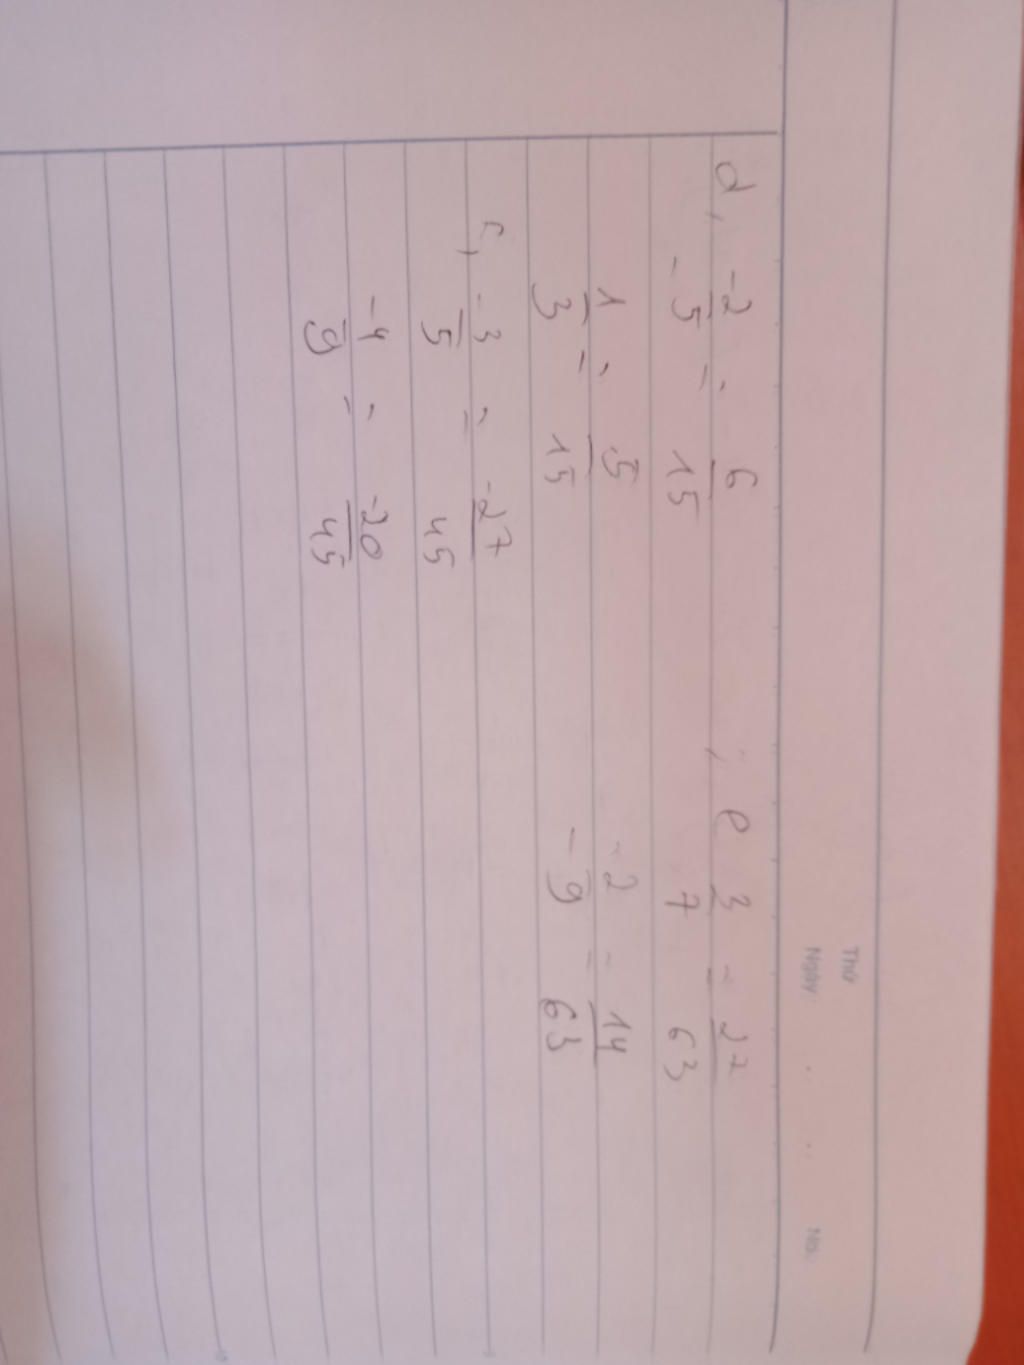 Thứ
Ngày No.
d, -2/-5 = 6/15 ; e 3/7 = 27/63
1/3 = 5/15 -2/-9 = 14/63
c, -3/5 = -27/45
-4/9 = -20/45